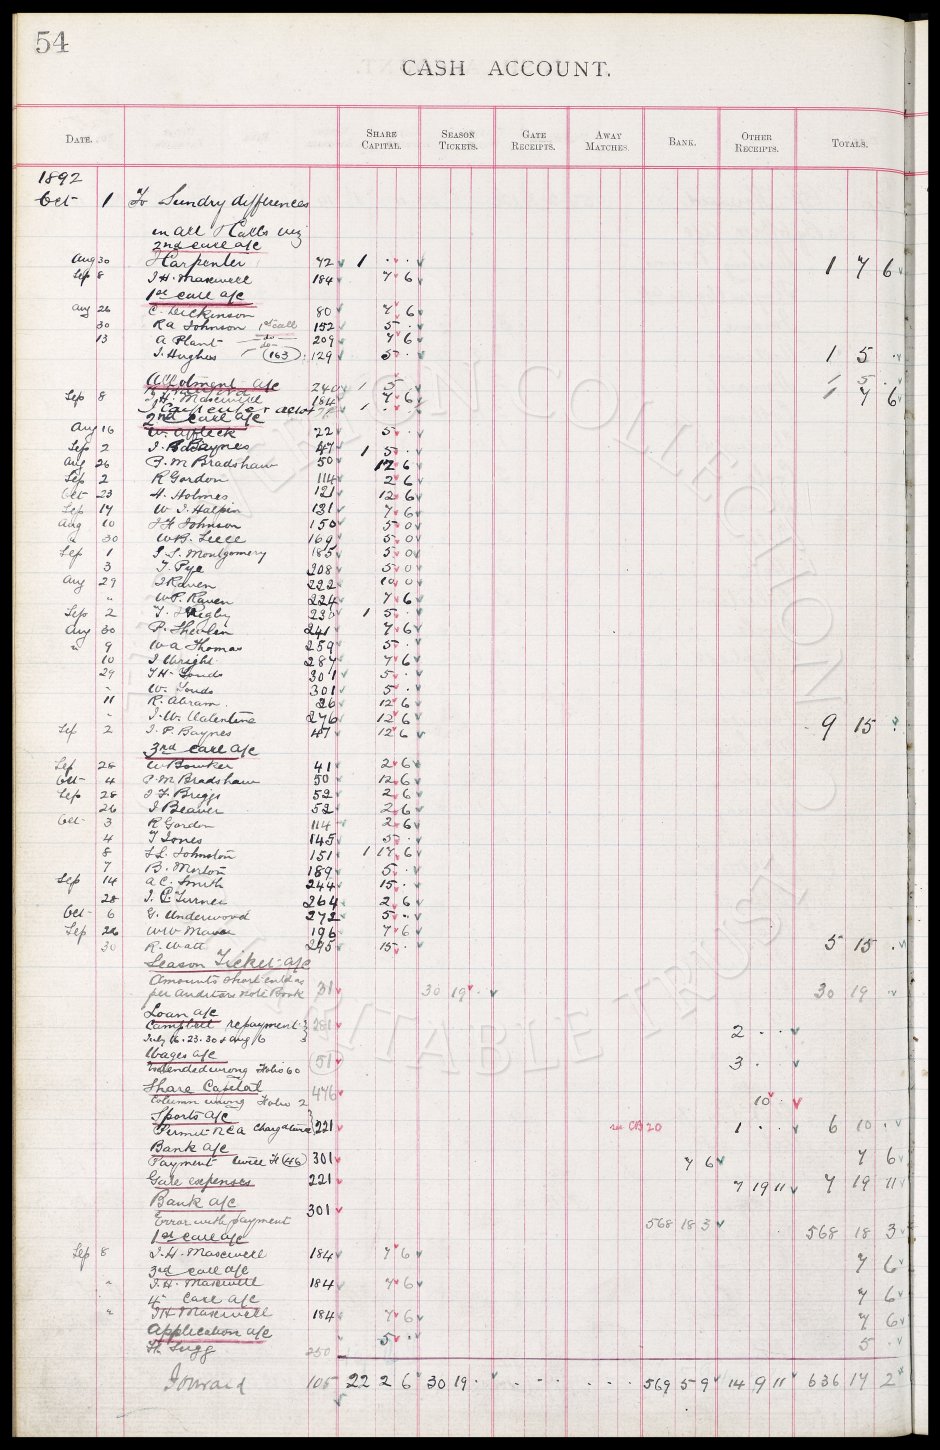 54
CASH ACCOUNT.
DATE. SHARE CAPITAL. SEASON TICKETS. GATE RECEIPTS. AWAY MATCHES. BANK. OTHER RECEIPTS. TOTALS.
1892
Oct 1 To Sundry differences
in all Calls viz
2nd call a/c
Aug 30 Carpenter 72 1 . . 1 7 6
Sep 8 J.H. Maxwell 184 7 6
1st call a/c
Aug 26 C. Dickinson 80 7 6
30 R A Johnson 1st call 152 5 .
13 A Plant do 209 7 6
J. Hughes (163) 129 5 . 1 5 .
Allotment a/c 240 1 5 1 5 .
Sep 8 J.H. Maxwell 184 7 6 1 7 6
J Carpenter 1 . .
2nd call a/c
Aug 16 W. Affleck 22 5 .
Sep 2 J. Baynes 47 1 5 .
Aug 26 P. M Bradshaw 50 12 6
Sep 2 R Gordon 114 2 6
Oct 23 H. Holmes 121 12 6
Sep 14 W J. Halpin 131 7 6
Aug 10 Johnson 150 5 0
" 30 W B. 169 5 0
Sep 1 Montgomery 185 5 0
3 T. Pye 208 5 0
Aug 29 J Raven 222 10 0
" W P. Raven 224 7 6
Sep 2 T. Rigby 230 1 5 .
Aug 30 P. 241 7 6
" 9 W A Thomas 259 5 .
10 J Wright 287 7 6
29 T H. 301 5 .
" W. 301 5 .
11 R. Abram. 26 12 6
" J. W. Valentine 276 12 6 9 15 .
Sep 2 J. P. Baynes 47 12 6
3rd call a/c
Sep 28 W Bowker 41 2 6
Oct 4 P. M Bradshaw 50 12 6
Sep 28 Briggs 52 2 6
26 J Beaver 52 2 6
Oct 3 R Gordon 114 2 6
4 T Jones 145 5 .
8 Johnston 151 1 17 6
7 B. Morton 189 5 .
Sep 14 A C. Smith 244 15 .
28 Turner 264 2 6
Oct 6 G. Underwood 272 5 .
Sep 26 W W Mawer 196 7 6
30 R. Watt 295 15 . 5 15 .
Season Ticket a/c
Amounts short entd as
per Auditors note Book 31 30 19 . 30 19 .
Loan a/c
Campbell repayment 281 2 . .
July 16. 23. 30 & Aug 6
Wages a/c
Extended wrong Folio 60 (51) 3 . .
Share Capital 476
Column wrong Folio 2 10 .
Sports a/c
Permit N C A Charged twice 221 see CB 20 1 . . 6 10 .
Bank a/c
Payment twice Fo (46) 301 7 6 7 6
Gate expenses 221 7 19 11 7 19 11
Bank a/c 301
Error with payment 568 18 3 568 18 3
1st call a/c
Sep 8 J.H. Maxwell 184 7 6 7 6
3rd call a/c
" J.H. Maxwell 184 7 6 7 6
4th Call a/c
" J H Maxwell 184 7 6 7 6
Application a/c 5 . 5 .
H. Sugg 250
Forward 105 22 2 6 30 19 . . . . . . . 569 5 9 14 9 11 636 17 2